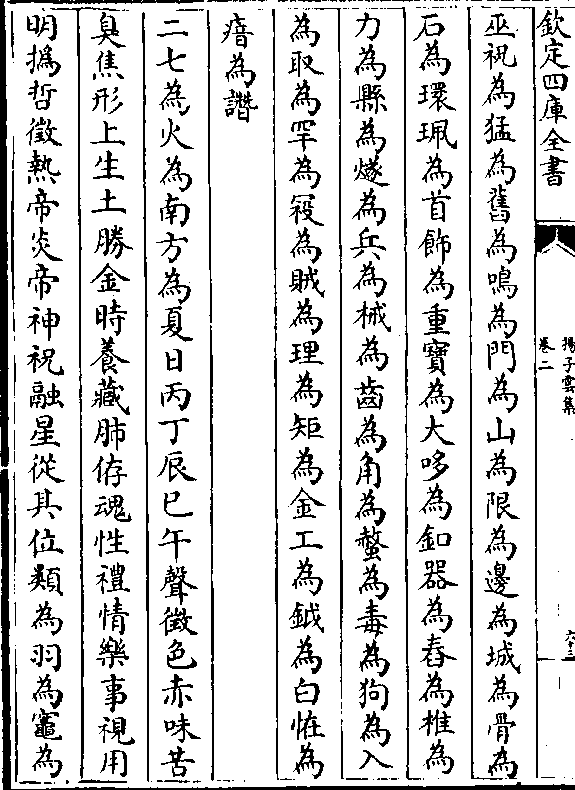 欽定四庫全書
揚子雲集
卷二
六十三
巫祝為猛為舊為鳴為門為山為限為邊為城為骨為
石為環珮為首飾為重寶為大哆為釦器為舂為椎為
力為縣為燧為兵為械為齒為角為螫為毒為狗為入
為取為罕為冦為賊為理為矩為金工為鉞為白恠為
瘖為譖
二七為火為南方為夏日丙丁辰巳午聲徵色赤味苦
臭焦形上生土勝金時養藏肺侟魂性禮情樂事視用
明撝哲徵熱帝炎帝神祝融星從其位類為羽為竈為